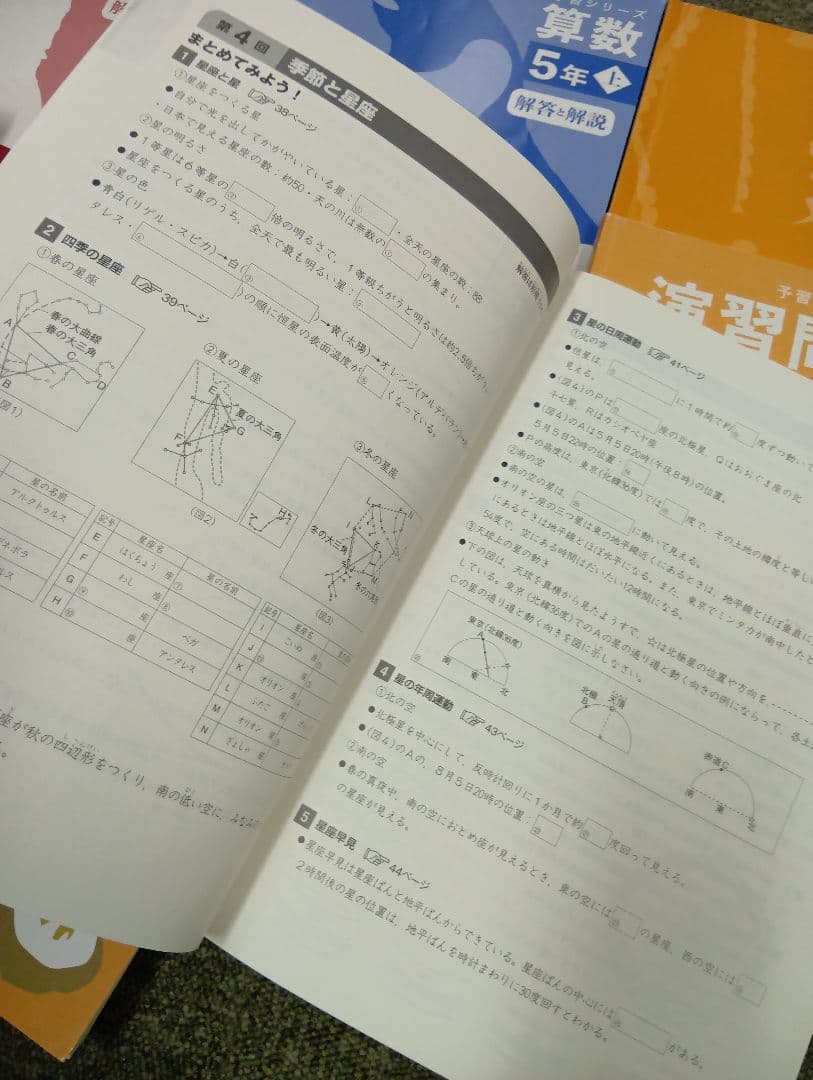 算数
5年 上
解答と解説
演習問
第4回 季節と星座
まとめてみよう!
1 星座と星 38ページ
①星座をつくる星
●自分で光を出してかがやいている星:① ・全天の星座の数:88
・日本で見える星座の数:約50・天の川は無数の の集まり。
②星の明るさ
●1等星は6等星の 倍の明るさで、1等級ちがうと明るさは約2.5倍ちがう。
●星座をつくる星のうち、全天で最も明るい星:
③星の色
●青白(リゲル・スピカ)→白( )→黄(太陽)→オレンジ(アルデバラン)
タレス・ )の順に恒星の表面温度が くなっている。
2 四季の星座 39ページ
①春の星座
春の大曲線
春の大三角
A
B
C
D
(図1)
②夏の星座
E
夏の大三角
G
F
H
(図2)
③冬の星座
冬の大三角
(図3)
星の名前
アルクトゥルス
デネボラ
記号 星座名 星の名前
E はくちょう 座
F わし 座
G 座 ベガ
H 座 アンタレス
記号 星座名
I こいぬ
J
K オリオン 座
L ふたご 座
M オリオン 座
N ぎょしゃ 座
座が秋の四辺形をつくり、南の低い空に、
3 星の日周運動 41ページ
①北の空
●恒星は、 に1時間で約 度ずつ動いて
見える。
●(図4)のPは 座の北極星、Qはおおぐま座の北
斗七星、Rはカシオペヤ座
●(図4)のAは5月5日20時(午後8時)の位置。
5月5日22時の位置:
●Pの高度は、東京(北緯36度)では 度で、その土地の緯度と等しい
②南の空
●南の空の星は、 に動いて見える。
●オリオン座の三つ星は東の地平線近くにあるときは、地平線とほぼ垂直に
にあるときは地平線とほぼ水平になる。また、東京でミンタカが南中したと
54度で、空にある時間はだいたい12時間になる。
③天球上の星の動き
●下の図は、天球を真横から見たようすで、☆は北極星の位置や方向を、
している。東京(北緯36度)でのAの星の通り道と動く向きの例にならって、各土
Cの星の通り道と動く向きを図に示しなさい。
東京(北緯36度)
A
南 東 北
北極
B
赤道
C
南 東 北
4 星の年周運動 43ページ
①北の空
●北極星を中心にして、反時計回りに1か月で約 度回って見える。
●(図4)のAの、8月5日20時の位置:
②南の空
●春の真夜中、南の空におとめ座が見えるとき、東の空には の星座、西の空には
の星座が見える。
5 星座早見 44ページ
●星座早見は星座ばんと地平ばんからできている。星座ばんの中心には がある。
2時間後の星の位置は、地平ばんを時計まわりに30度回すとわかる。